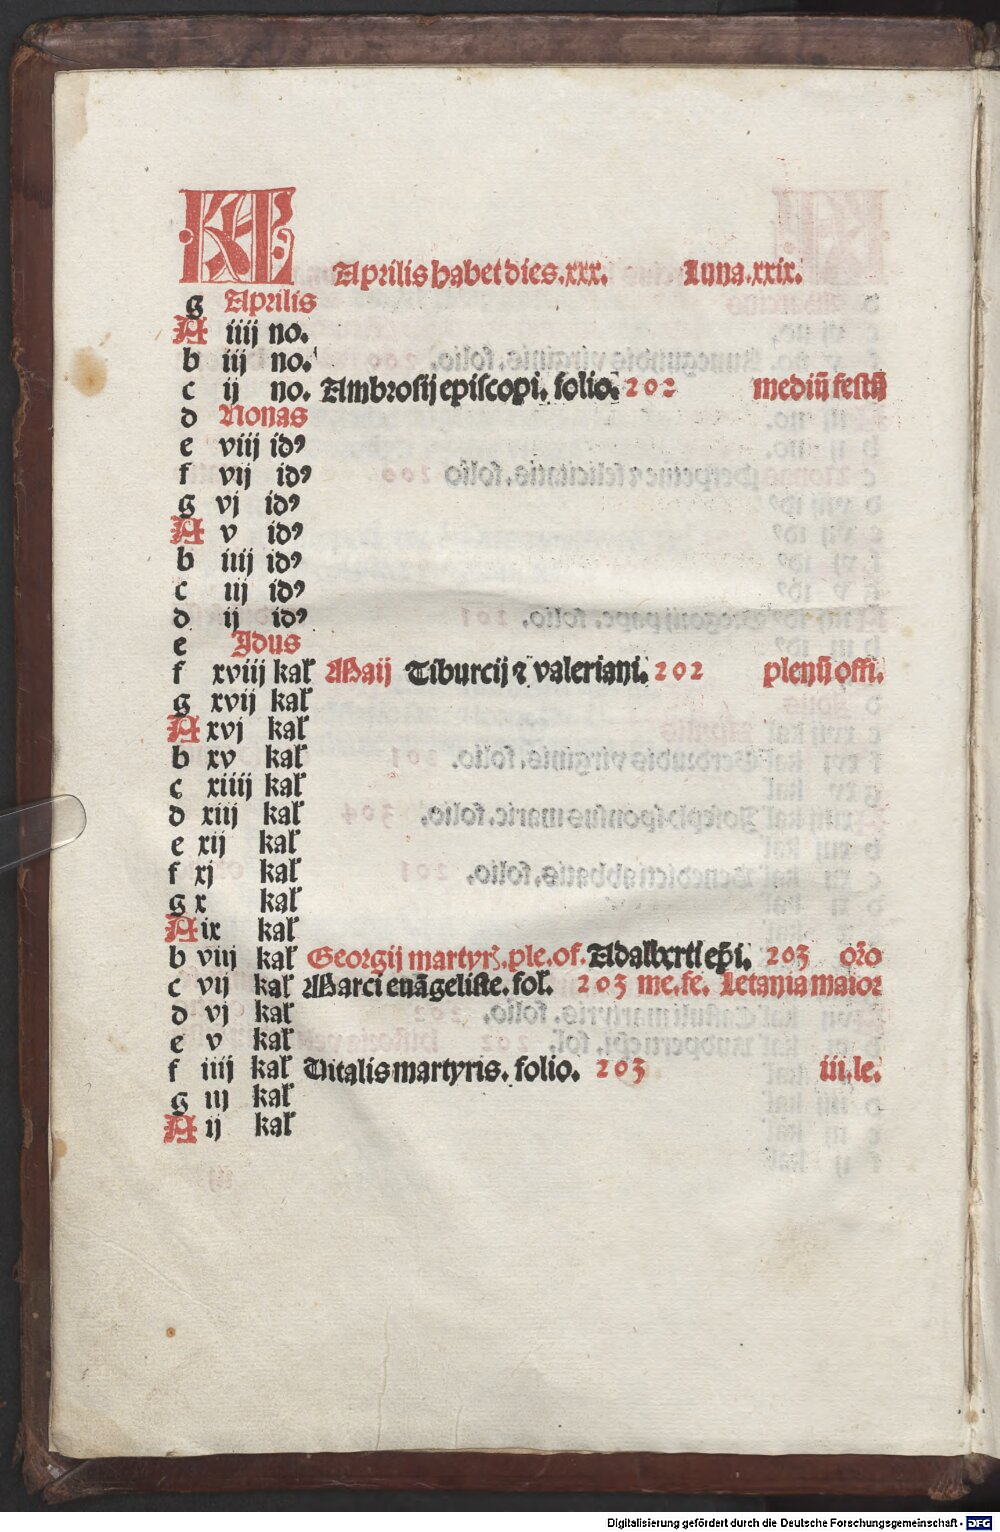 KL Aprilis habet dies.xxx. Luna.xxix.
g Aprilis
A iiij no.
b iij no.
c ij no. Ambrosij episcopi. folio. 202 mediū festū
d Nonas
e viij idꝰ
f vij idꝰ
g vj idꝰ
A v idꝰ
b iiij idꝰ
c iij idꝰ
d ij idꝰ
e Idus
f xviij kal' Maij Tiburcij ⁊ valeriani. 202 plenū offi.
g xvij kal'
A xvj kal'
b xv kal'
c xiiij kal'
d xiij kal'
e xij kal'
f xj kal'
g x kal'
A ix kal'
b viij kal' Georgij martyrꝭ. ple. of. Adalberti ep̄i. 203 oꝛ̄o
c vij kal' Marci euāgeliste. fol'. 203 me. fe. Letania maioꝛ
d vj kal'
e v kal'
f iiij kal' Uitalis martyris. folio. 203 iii. le.
g iij kal'
A ij kal'
Digitalisierung gefördert durch die Deutsche Forschungsgemeinschaft - DFG